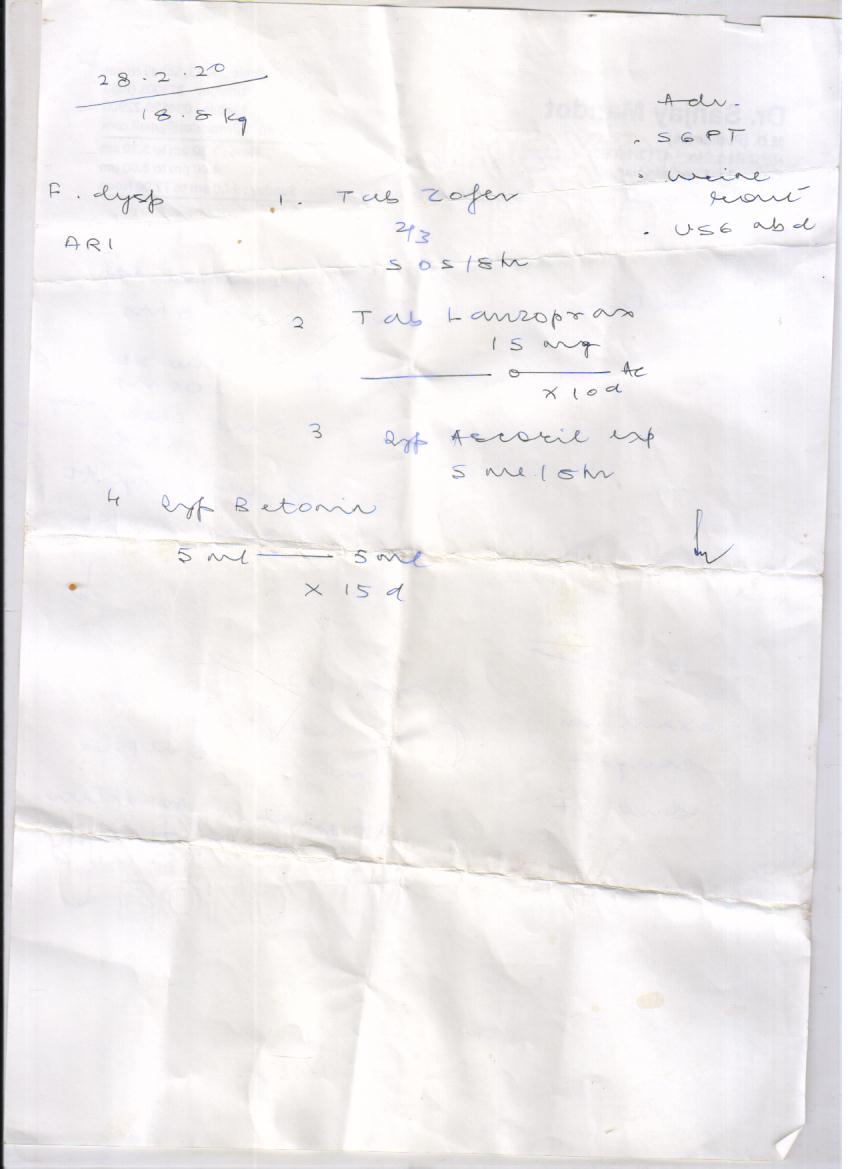 28.2.20
18.8 kg
Adv.
. SGPT
. urine
rout
. USG abd
F. dysp
ARI
1. Tab Zofer
2/3
SOS/8hr
2 Tab Lanzoprax
15 mg
—— o —— Ac
x 10d
3 Syp Ascoril exp
5 ml/8hr
4 Syp Betonin
5 ml —— 5 ml
x 15 d